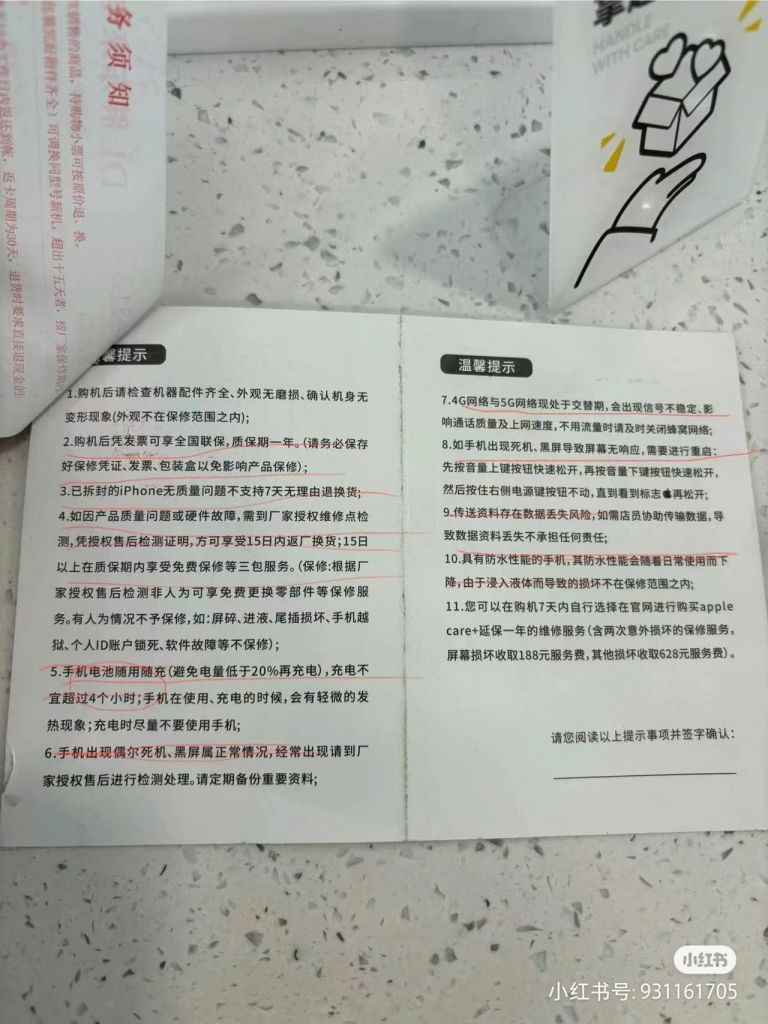 务须知
发销售的商品，持购物小票可按原价退、换。
附件齐全）可调换同型号新机。超出十五天者，按厂家保修期
到帐，返卡周期为30天，退货时要求直接退现金的
HANDLE
WITH CARE
馨提示
1.购机后请检查机器配件齐全、外观无磨损、确认机身无
变形现象(外观不在保修范围之内);
2.购机后凭发票可享全国联保，质保期一年。(请务必保存
好保修凭证、发票、包装盒以免影响产品保修）；
3.已拆封的iPhone无质量问题不支持7天无理由退换货;
4.如因产品质量问题或硬件故障，需到厂家授权维修点检
测，凭授权售后检测证明，方可享受15日内返厂换货;15日
以上在质保期内享受免费保修等三包服务。(保修:根据厂
家授权售后检测非人为可享免费更换零部件等保修服
务。有人为情况不予保修，如:屏碎、进液、尾插损坏、手机越
狱、个人ID账户锁死、软件故障等不保修）;
5.手机电池随用随充(避免电量低于20%再充电），充电不
宜超过4个小时;手机在使用、充电的时候，会有轻微的发
热现象;充电时尽量不要使用手机;
6.手机出现偶尔死机、黑屏属正常情况，经常出现请到厂
家授权售后进行检测处理。请定期备份重要资料;
温馨提示
7.4G网络与5G网络现处于交替期，会出现信号不稳定、影
响通话质量及上网速度，不用流量时请及时关闭蜂窝网络;
8.如手机出现死机、黑屏导致屏幕无响应，需要进行重启:
先按音量上键按钮快速松开，再按音量下键按钮快速松开，
然后按住右侧电源键按钮不动，直到看到标志再松开;
9.传送资料存在数据丢失风险，如需店员协助传输数据，导
致数据资料丢失不承担任何责任;
10.具有防水性能的手机，其防水性能会随着日常使用而下
降，由于浸入液体而导致的损坏不在保修范围之内;
11.您可以在购机7天内自行选择在官网进行购买apple
care+延保一年的维修服务(含两次意外损坏的保修服务，
屏幕损坏收取188元服务费，其他损坏收取628元服务费）。
请您阅读以上提示事项并签字确认:
小红书
小红书号: 931161705